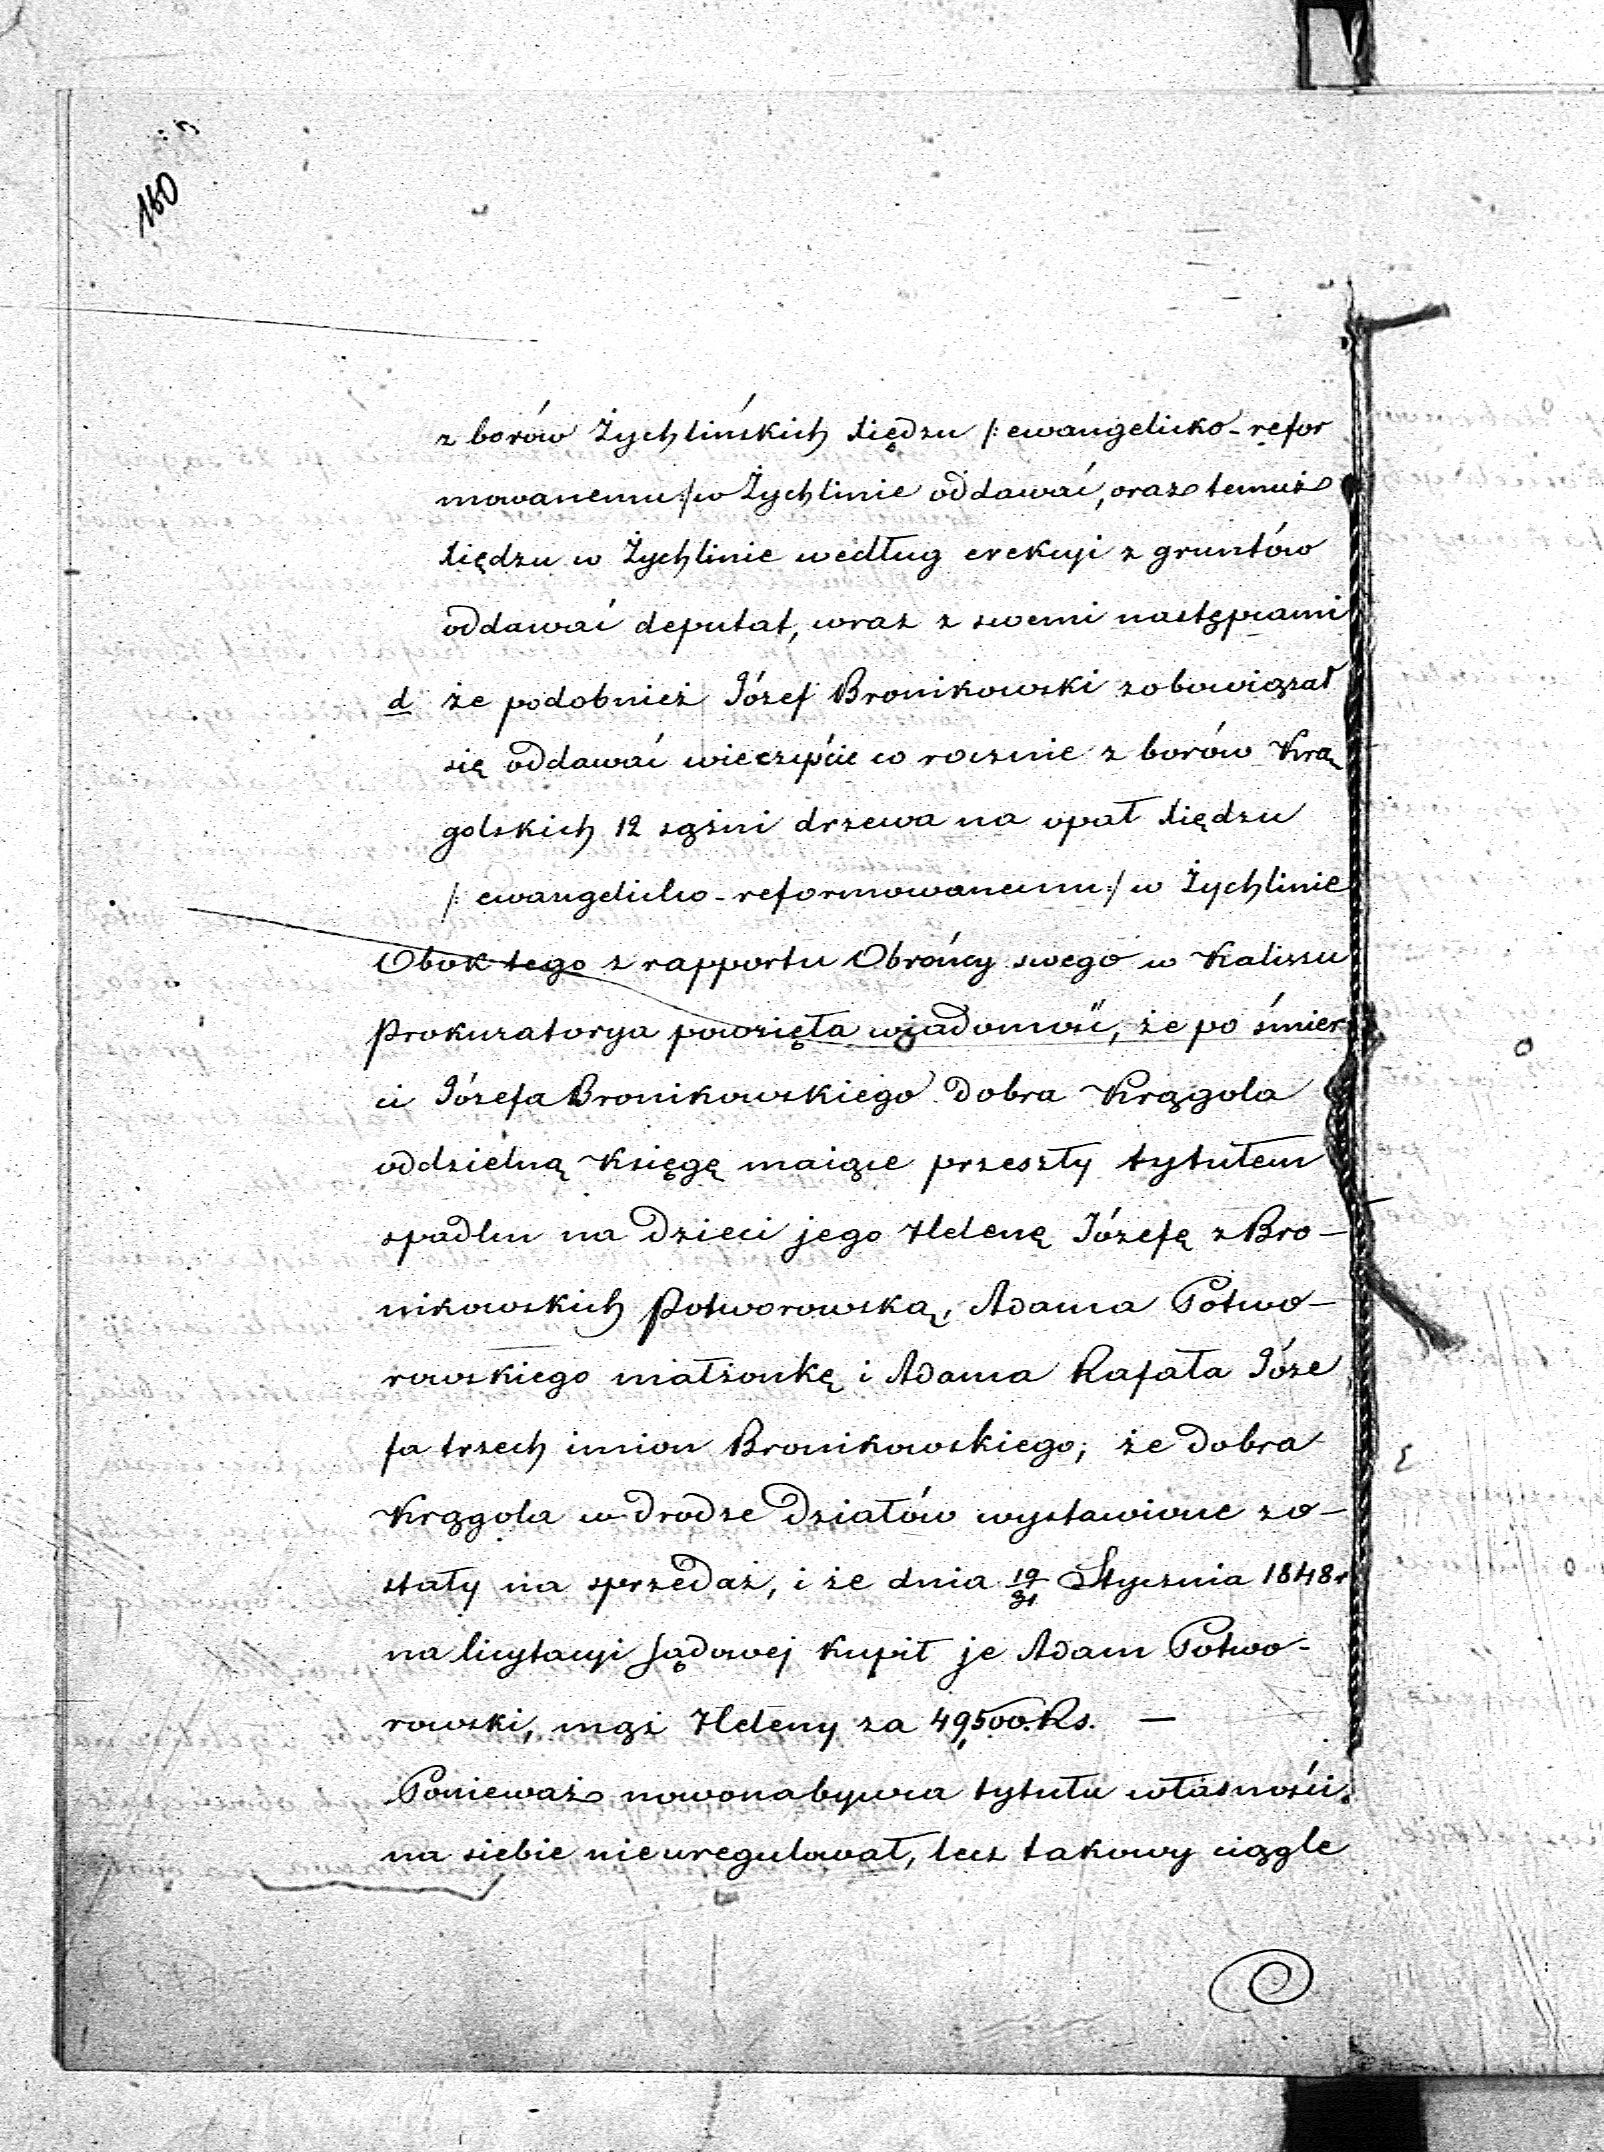 160
z borów Żychlińskich Xiędzu /: ewangelicko-refor
mowanemu :/ w Żychlinie oddawać, oraz temuż
Xiędzu w Żychlinie według erekcyi z gruntów
oddawać deputat, wraz z swemi następcami
d że podobnież Józef Bronikowski zobowiązał
się oddawać wieczyście co rocznie z borów Krą
golskich 12 sążni drzewa na opał Xiędzu
/: ewangelicko-reformowanemu :/ w Żychlinie
Obok tego z rapportu Obrońcy swego w Kaliszu
Prokuratorya powzięła wiadomość, że po śmier
ci Józefa Bronikowskiego dobra Krągola
oddzielną Księgę maiące przeszły tytułem
spadku na dzieci jego Helenę Józefę z Bro-
nikowskich Potworowską, Adama Potwo-
rowskiego małżonkę i Adama Rafała Józe
fa trzech imion Bronikowskiego; że dobra
Krągola w drodze działów wystawione zo-
stały na sprzedaż, i że dnia 19/31 Stycznia 1848 r
na licytacyi sądowej kupił je Adam Potwo-
rowski, mąż Heleny za 49,500. Rs. —
Ponieważ nowonabywca tytułu własności
na siebie nieuregulował, lecz takowy ciągle